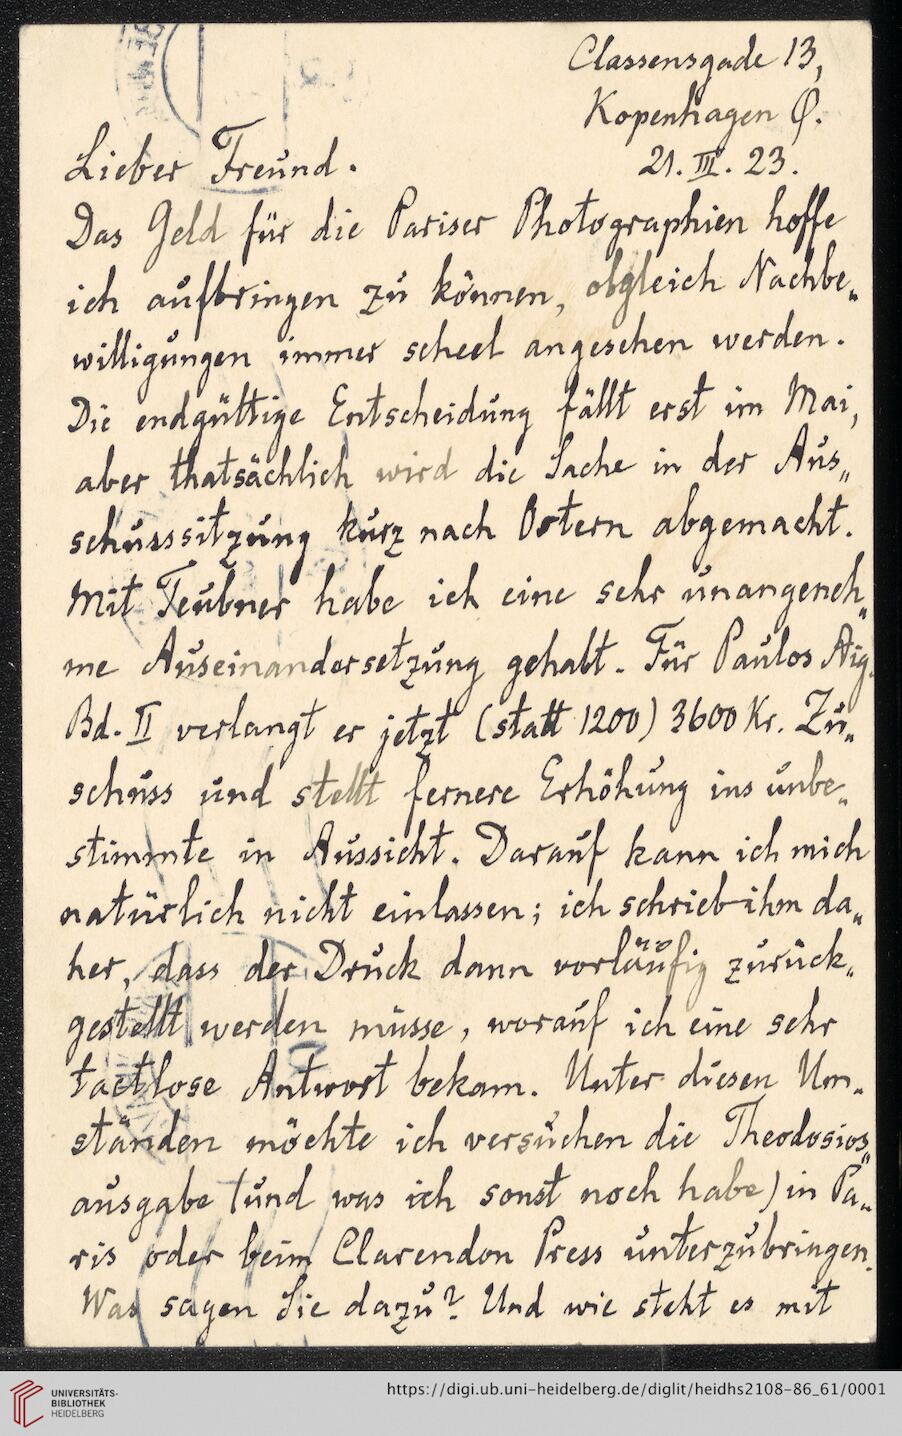 Classensgade 13,
Kopenhagen Ø.
21. III. 23.
Lieber Freund.
Das Geld für die Pariser Photographien hoffe
ich aufbringen zu können, obgleich Nachbe„
willigungen immer scheel angesehen werden.
Die endgültige Entscheidung fällt erst im Mai,
aber thatsächlich wird die Sache in der Aus„
schusssitzung kurz nach Ostern abgemacht.
Mit Teubner habe ich eine sehr unangeneh„
me Auseinandersetzung gehabt. Für Paulos Aig.
Bd. II verlangt er jetzt (statt 1200) 3600 Kr. Zu„
schuss und stellt fernere Erhöhung ins unbe„
stimmte in Aussicht. Darauf kann ich mich
natürlich nicht einlassen; ich schrieb ihm da„
her, dass der Druck dann vorläufig zurück„
gestellt werden müsse, worauf ich eine sehr
tactlose Antwort bekam. Unter diesen Um„
ständen möchte ich versuchen die Theodosios„
ausgabe (und was ich sonst noch habe) in Pa„
ris oder beim Clarendon Press unterzubringen.
Was sagen Sie dazu? Und wie steht es mit
UNIVERSITÄTS-
BIBLIOTHEK
HEIDELBERG
https://digi.ub.uni-heidelberg.de/diglit/heidhs2108-86_61/0001